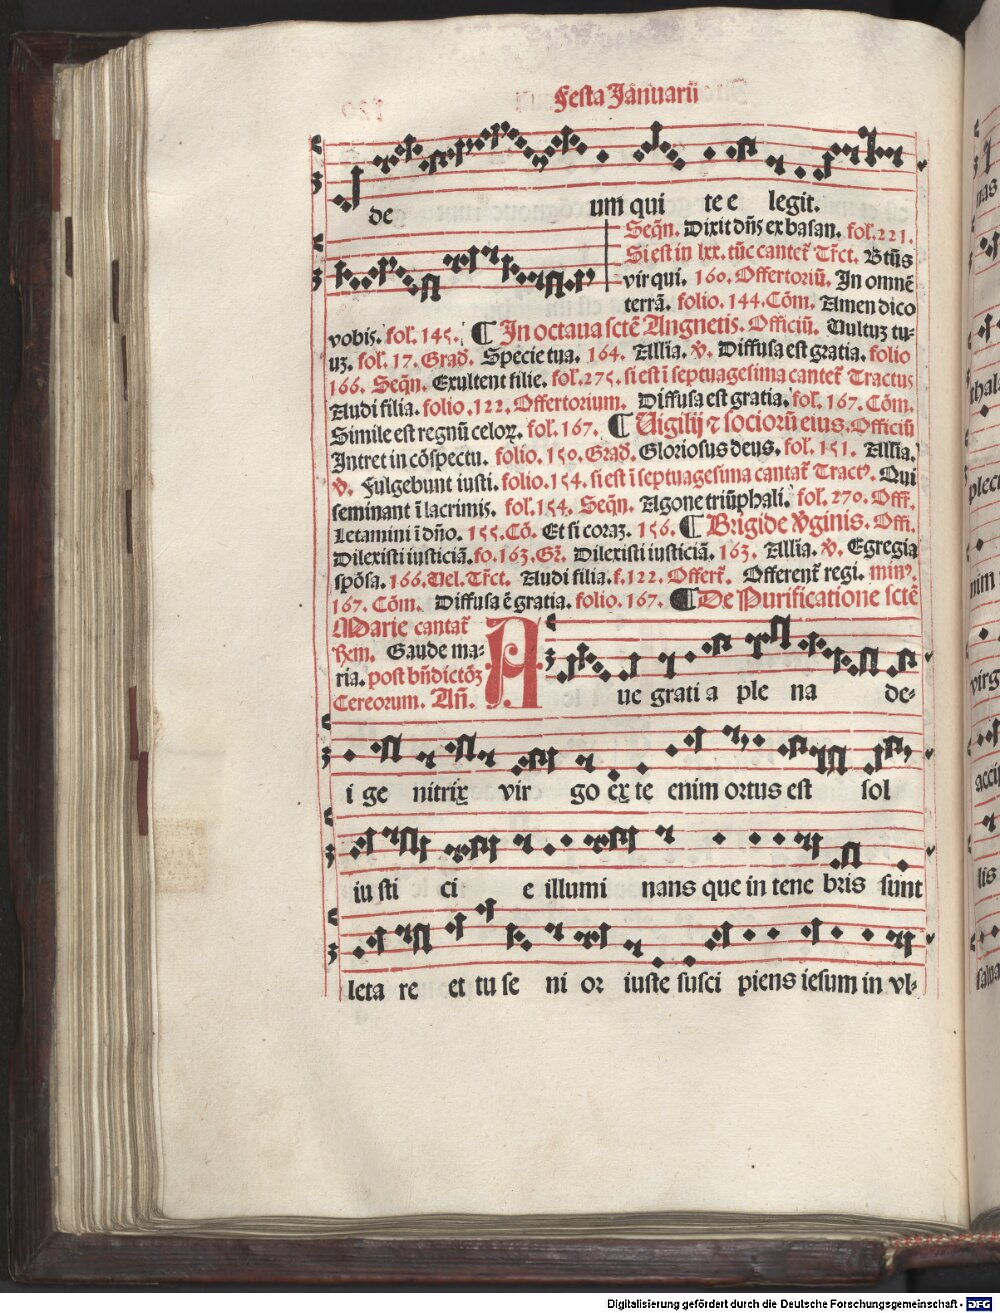 Festa Januarii
de um qui te e legit.
Seq̃n. Dixit dñs ex basan. fol. 221.
Si est in lxx. tũc canteť Tr̃ct. Btũs
vir qui. 160. Offertoriũ. In omnẽ
terrã. folio. 144. Cõm. Amen dico
vobis. fol. 145. ¶ In octaua sctẽ Angnetis. Officiũ. Vultuꝫ tu-
uꝫ. fol. 17. Grad. Specie tua. 164. Allia. ꝟ. Diffusa est gratia. folio
166. Seq̃n. Exultent filie. fol. 275. si est ĩ septuagesima canteť Tractus
Audi filia. folio. 122. Offertorium. Diffusa est gratia. fol. 167. Cõm.
Simile est regnũ celoꝝ. fol. 167. ¶ Uigilij ⁊ socioꝛũ eius. Officiũ
Intret in cõspectu. folio. 150. Grad. Gloriosus deus. fol. 151. Allia.
ꝟ. Fulgebunt iusti. folio. 154. si est ĩ septuagesima cantať Tractꝰ. Qui
seminant ĩ lacrimis. fol. 154. Seq̃n. Agone triũphali. fol. 270. Off.
Letamini ĩ dño. 155. Cõ. Et si coraꝫ. 156. ¶ Brigide ꝟginis. Offi.
Dilexisti iusticiã. fo. 163. Gr̃. Dilexisti iusticiã. 163. Allia. ꝟ. Egregia
spõsa. 166. Uel. Tr̃ct. Audi filia. f. 122. Offerť. Offerenť regi. minꝰ.
167. Cõm. Diffusa ẽ gratia. folio. 167. ¶ De Purificatione sctẽ
Marie cantať
Rm̃. Gaude ma-
ria. post bñdictõꝫ
Cereorum. Añ.
A ue grati a ple na de-
i ge nitrix vir go ex te enim ortus est sol
iu sti ci e illumi nans que in tene bris sunt
leta re et tu se ni oꝛ iuste susci piens iesum in vl-
Digitalisierung gefördert durch die Deutsche Forschungsgemeinschaft - DFG